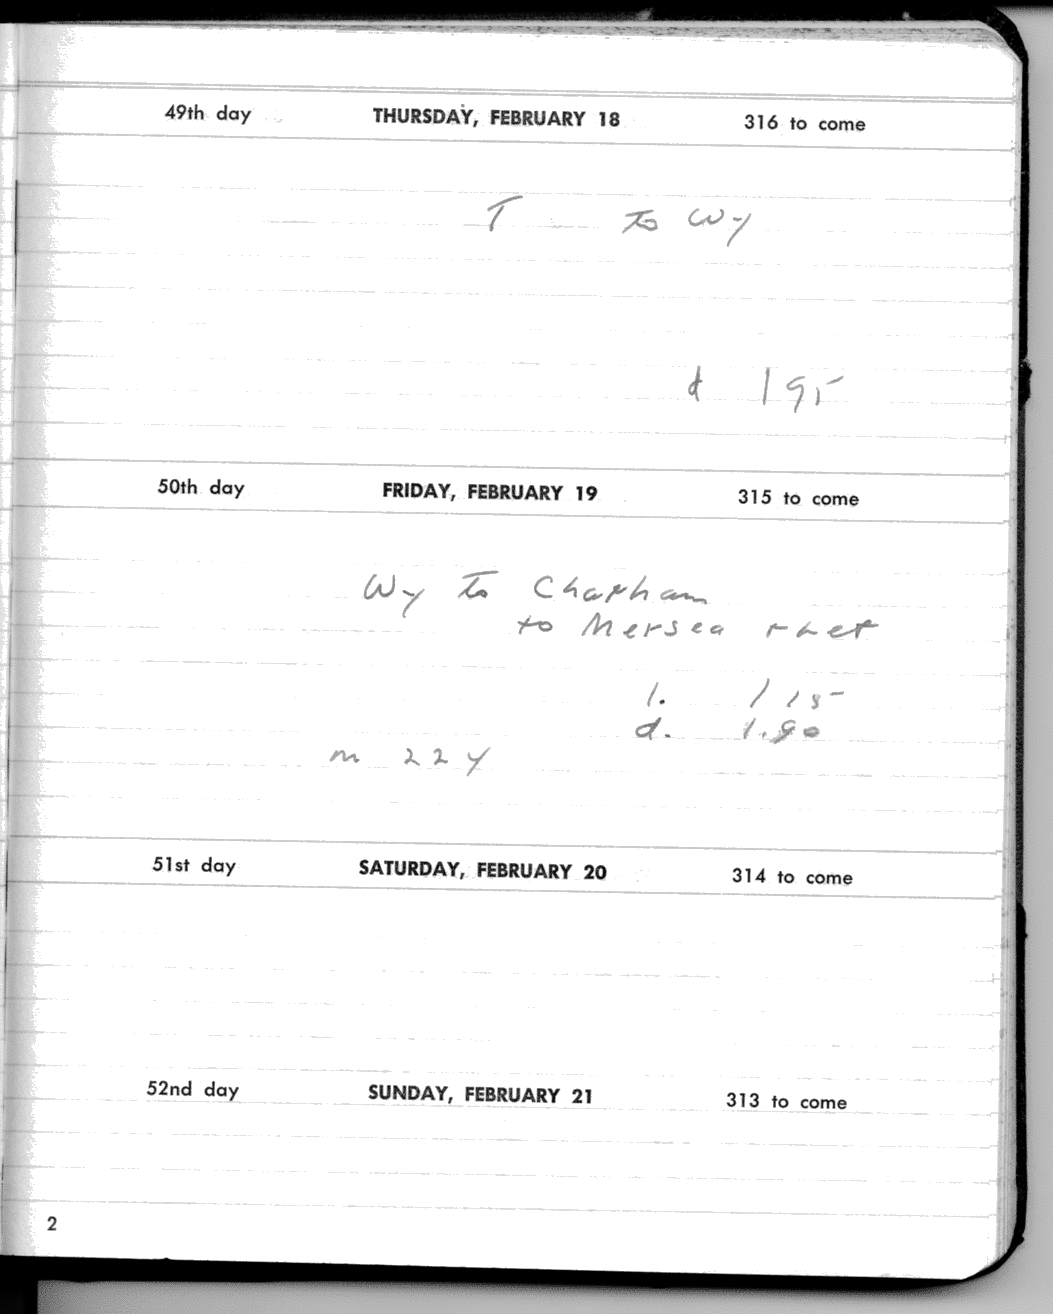 49th day THURSDAY, FEBRUARY 18 316 to come
T to Wy
d 195
50th day FRIDAY, FEBRUARY 19 315 to come
Wy to Chapham
to Mersea + ret
l. 1 15
d. 1.90
m 224
51st day SATURDAY, FEBRUARY 20 314 to come
52nd day SUNDAY, FEBRUARY 21 313 to come
2